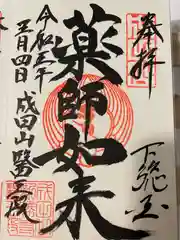 奉拝
下総国
薬師如来
令和三年
五月四日
成田山醫王殿